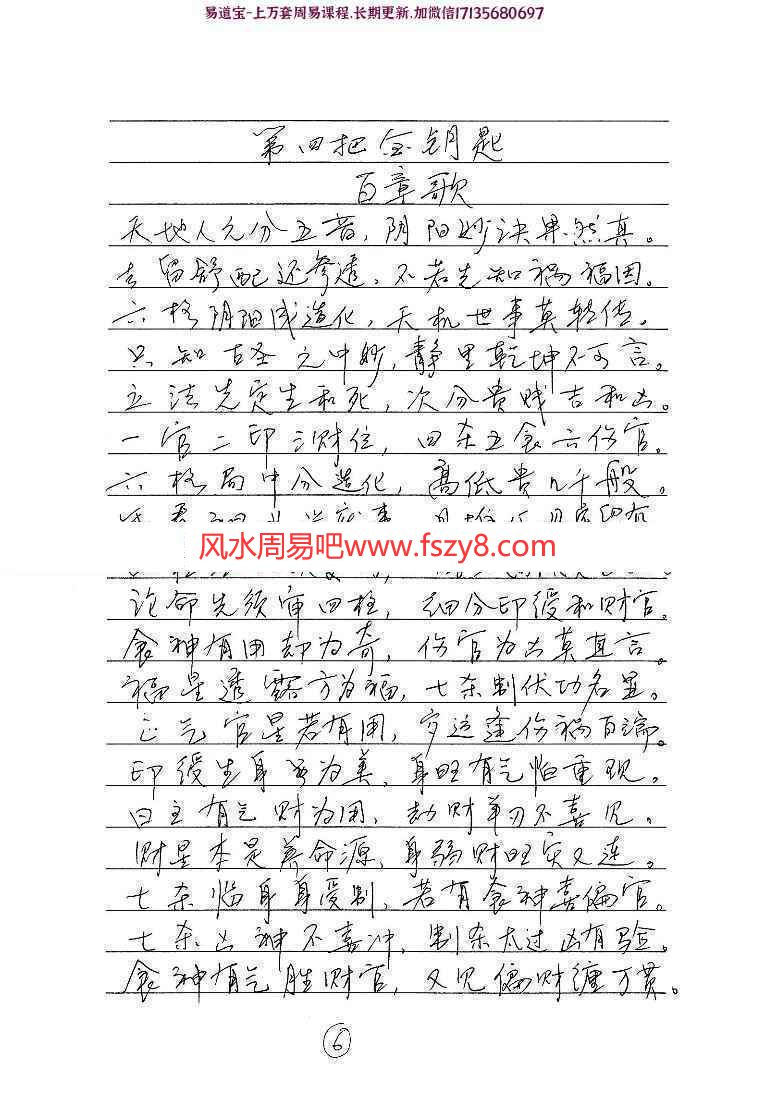 易道宝-上万套周易课程.长期更新.加微信17135680697
第四把金钥匙
百章歌
天地人元分五音，阴阳妙诀果然真。
去留舒配还参透，不若先知祸福因。
六格阴阳成造化，天机世事莫轻传。
只知古圣元中妙，静里乾坤不可言。
立法先定生和死，次分贵贱吉和凶。
一官二印三财位，四杀五食六伤官。
六格局中分造化，高低贵几千般。
风水周易吧www.fszy8.com
论命先须审四柱，细分印绶和财官。
食神有用却为奇，伤官为凶莫直言。
福星透露方为福，七杀制伏功名显。
正气官星若有用，岁运逢伤祸百端。
印绶生身为美，身旺有气怕重现。
日主有气财为用，劫财羊刃不喜见。
财星本是养命源，身弱财旺灾又连。
七杀临身身受制，若有食神喜偏官。
七杀凶神不喜冲，制杀太过凶有验。
食神有气胜财官，又见偏财缠万贯。
6